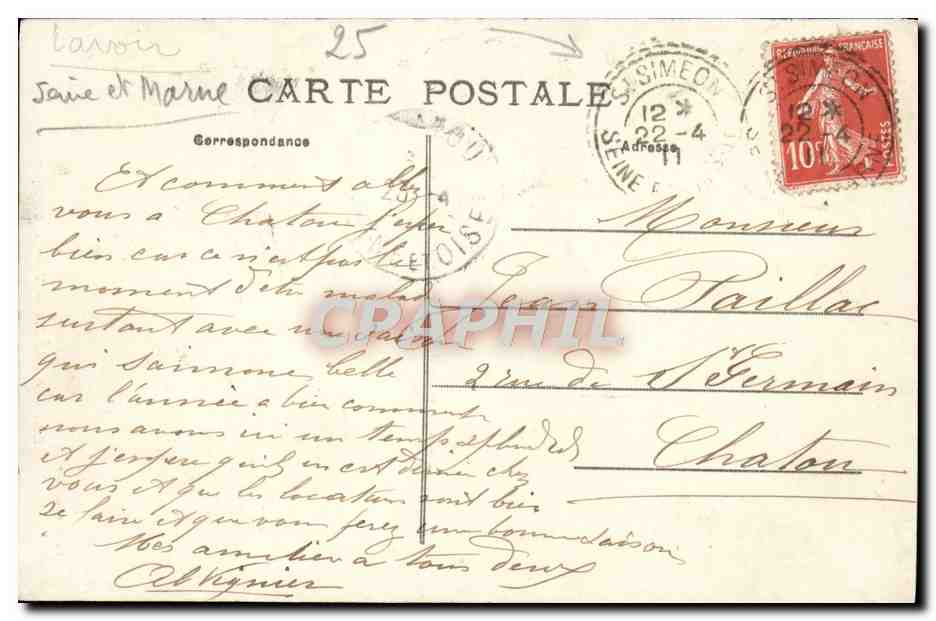 Lavoir
25
Seine et Marne
CARTE POSTALE
Correspondance
Adresse
ST SIMEON
12 *
22 - 4
11
SEINE
REPUBLIQUE FRANÇAISE
10
POSTES
ET OISE
CPAPHIL
Et comment allez
vous à Chatou j'espère
bien car ce n'est pas le
moment d'être malade
surtout avec une saison
qui s'annonce belle
car l'année a bien commencé
nous avons ici un temps splendide
et j'espère qu'il en est de même chez
vous et que les locations vont bien
se faire et que vous ferez une bonne saison
Mes amitiés à tous deux
Monsieur
Jean Paillac
2 rue de St Germain
Chatou